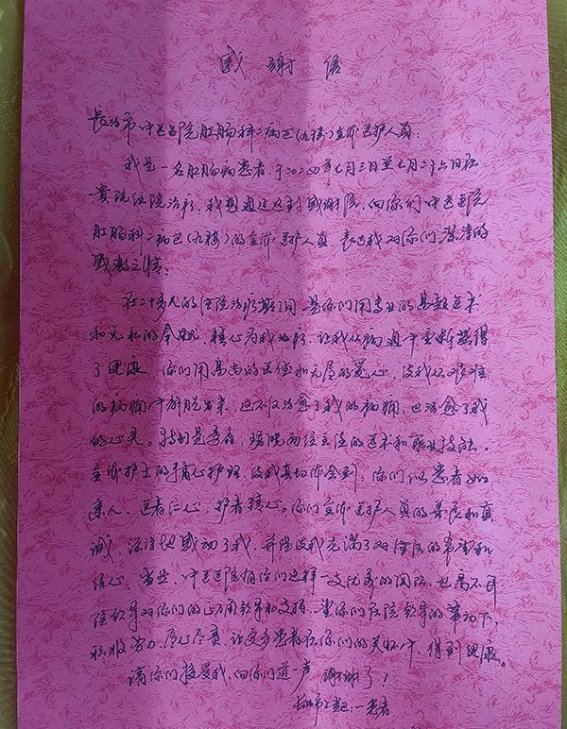 感谢信
长治市中医医院肛肠科二病区(九楼)全体医护人员:
我是一名肛肠病患者,于二〇二四年七月三日至七月二十六日在
贵院住院治疗,我想通过这封感谢信,向你们中医医院
肛肠科二病区(九楼)的全体医护人员,表达我对你们深深的
感激之情。
在二十多天的住院治疗期间,是你们用专业的医术
和无私的奉献,精心为我治疗,让我从病痛中重新获得
了健康,你们用高尚的医德和无屑的爱心,使我从艰难
的病痛中解脱出来,这不仅治愈了我的病痛,也治愈了我
的心灵。特别是 两位主任的医术和职业技能,
全体护士的精心护理,使我真切体会到:你们似患者如
亲人,医者仁心,护者精心。你们全体医护人员的善良和真
诚,深深地感动了我,并且使我充满了对生活的希望和
信心。当然,中医医院有你们这样一支优秀的团队,也离不开
院领导对你们的心用领导和支持。望你们在院领导的带动下,
积极努力,尽心尽责,让更多患者在你们的关怀中,得到健康。
请你们接受我,向你们道一声,谢谢了!
一患者